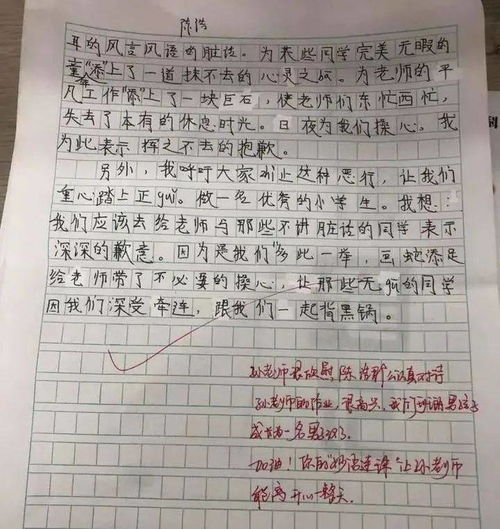 陈浩
耳的风言风语的脏话。为某些同学完美无暇的
童年"添"上了一道抹不去的心灵之灰。为老师的平
凡工作"添"上了一块巨石,使老师们东忙西忙,
失去了本有的休息时光。日夜为我们操心。我
为此表示挥之不去的抱歉。
另外,我呼吁大家停止这种恶行,让我们
重心踏上正gui。做一名优秀的小学生。我想:
我们应该去给老师与那些不讲脏话的同学表示
深深的歉意。因为是我们"多此一举,画蛇添足
给老师带了不必要的操心,让那些无辜的同学
因我们深受牵连,跟我们一起背黑锅。
孙老师很欣慰陈浩能认真对待
孙老师的作业,很高兴,我们班的男孩子
成长为一名男子汉了。
加油!你的"妙语连珠"让孙老师
能高开心一整天。